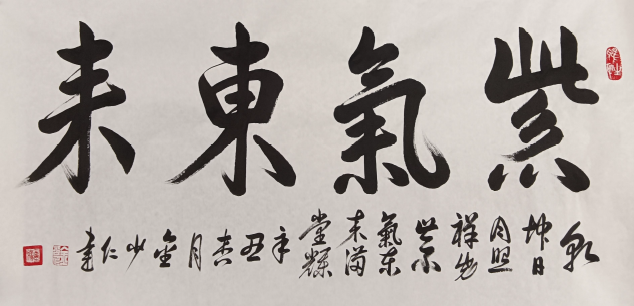 紫氣東来
乾坤日月照祥光紫氣东来满堂辛丑杏月金少仁書